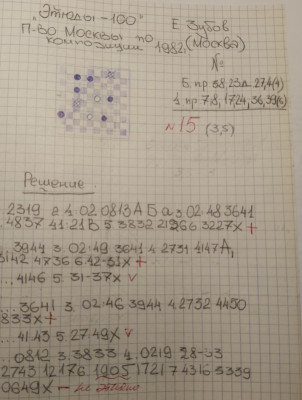 "Этюды-100"
Е. Зубов
П-во Москвы по
композиции 1982, (Москва)
№
Б. пр 38,23 д. 27,4(4)
ч. пр 7,8, 17,24, 36,39(6)
№15 (3,5)
Решение
2319 2. 02 0813 А Б а 3. 02-48 3641
4837 41-21 В 5 3832 3227х+
..3944 3. 02-49 3641 4 2731 4147А,
3142 4736 6.42-31х+
...4146 5. 31-37х v
...3641 3. 02-46 3944 4.2732 4450
833х+
...41-43 5.27-49х v
...0812 3.3833 4.0219 28-33
2743 12176 1905 1721 7 4316 3339
0649х -